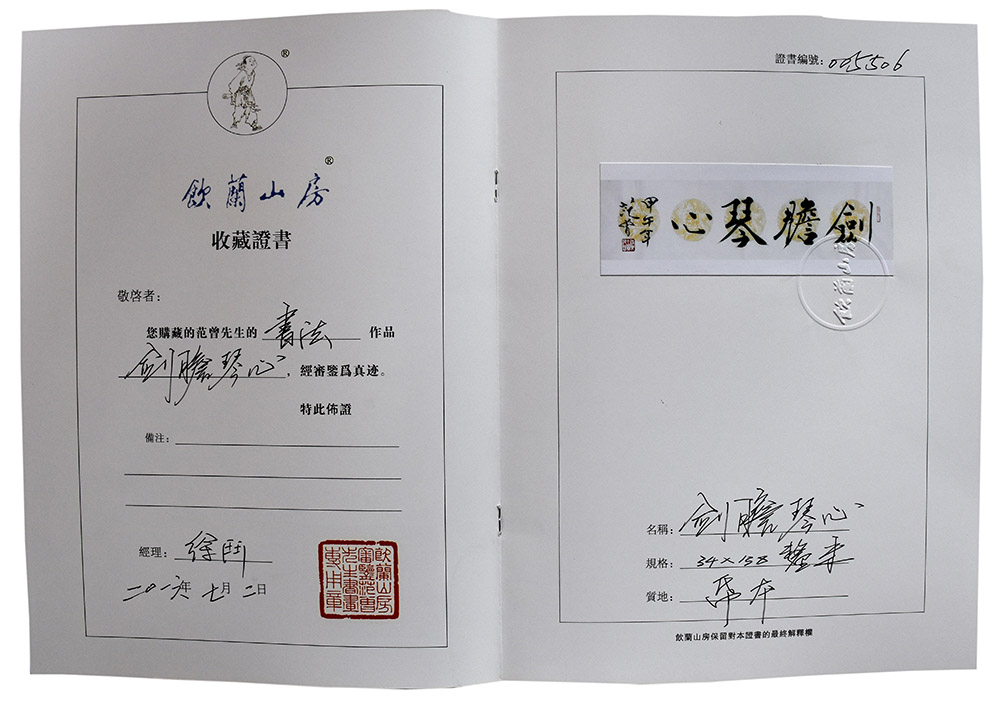 ®
飲蘭山房®
收藏證書
敬啓者：
您購藏的范曾先生的 書法 作品
劍膽琴心，經審鑒爲真迹。
特此佈證
備注：
經理：
二〇一六年 七月 二日
飲蘭山房
審鑒范曾
先生書畫
專用章
證書編號：005506
劍膽琴心
甲午年
范曾
飲蘭山房
名稱：劍膽琴心
規格：34×158 釐米
質地：
飲蘭山房保留對本證書的最終解釋權